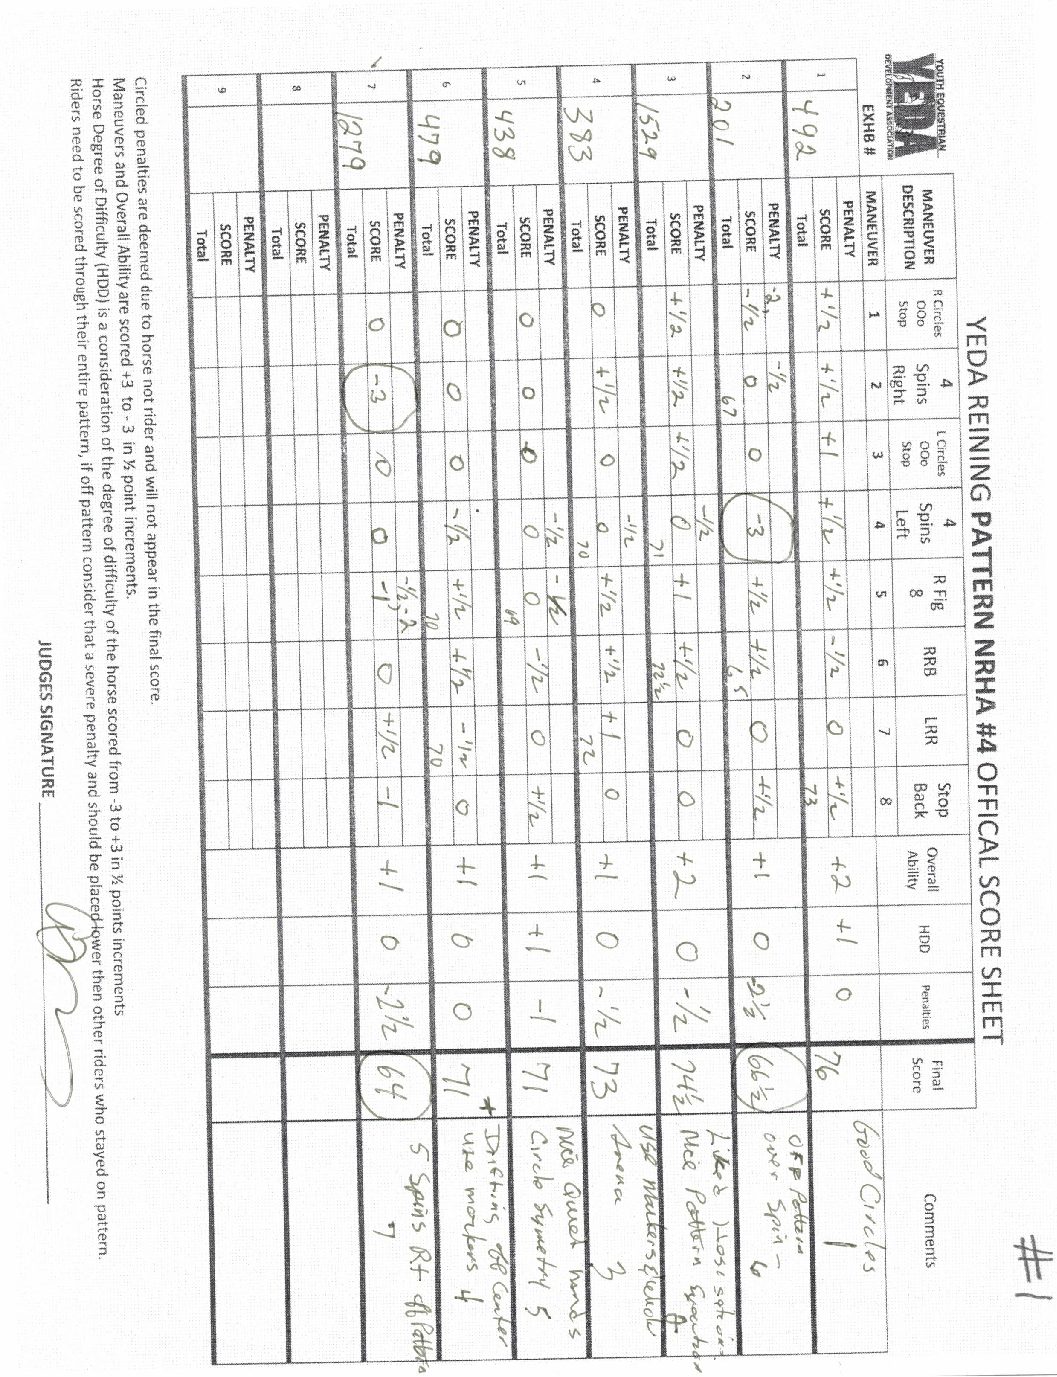 #1
YOUTH EQUESTRIAN
YEDA
DEVELOPMENT ASSOCIATION
YEDA REINING PATTERN NRHA #4 OFFICAL SCORE SHEET
EXHB # MANEUVER DESCRIPTION R Circles OOo Stop 4 Spins Right L Circles OOo Stop 4 Spins Left R Fig 8 RRB LRR Stop Back Overall Ability HDD Penalties Final Score Comments
MANEUVER 1 2 3 4 5 6 7 8
1 492 PENALTY Good Circles
SCORE +1/2 +1/2 +1 +1/2 +1/2 -1/2 0 +1/2 +2 +1 0 76 1
Total 73
2 201 PENALTY -2, -1/2 OFF Pattern
SCORE -1/2 0 0 -3 +1/2 +1/2 0 +1/2 +1 0 -2½ 66½ over Spin - 6
Total 67
3 1529 PENALTY -1/2 Liked
SCORE +1/2 +1/2 +1/2 0 +1 +1/2 0 0 +2 0 -1/2 74½ Nice Pattern
Total 71 72½
4 383 PENALTY -1/2 Use Markers
SCORE 0 +1/2 0 0 +1/2 +1/2 +1 0 +1 0 -1/2 73 Arena 3
Total 70 72
5 438 PENALTY -1/2 -1/2 Nice Quiet hands
SCORE 0 0 0 0 0 -1/2 0 +1/2 +1 +1 -1 71 Circle Symetry 5
Total 69
6 479 PENALTY Drifting off Center
SCORE 0 0 0 -1/2 +1/2 +1/2 -1/2 0 +1 0 0 71 + use markers 4
Total 70 70
7 1279 PENALTY -1/2, -2 5 Spins Rt off Pattern
SCORE 0 -3 0 0 -1 0 +1/2 -1 +1 0 -2½ 64 7
Total
8 PENALTY
SCORE
Total
9 PENALTY
SCORE
Total
Circled penalties are deemed due to horse not rider and will not appear in the final score.
Maneuvers and Overall Ability are scored +3 to - 3 in ½ point increments.
Horse Degree of Difficulty (HDD) is a consideration of the degree of difficulty of the horse scored from -3 to +3 in ½ points increments
Riders need to be scored through their entire pattern, if off pattern consider that a severe penalty and should be placed lower then other riders who stayed on pattern.
JUDGES SIGNATURE